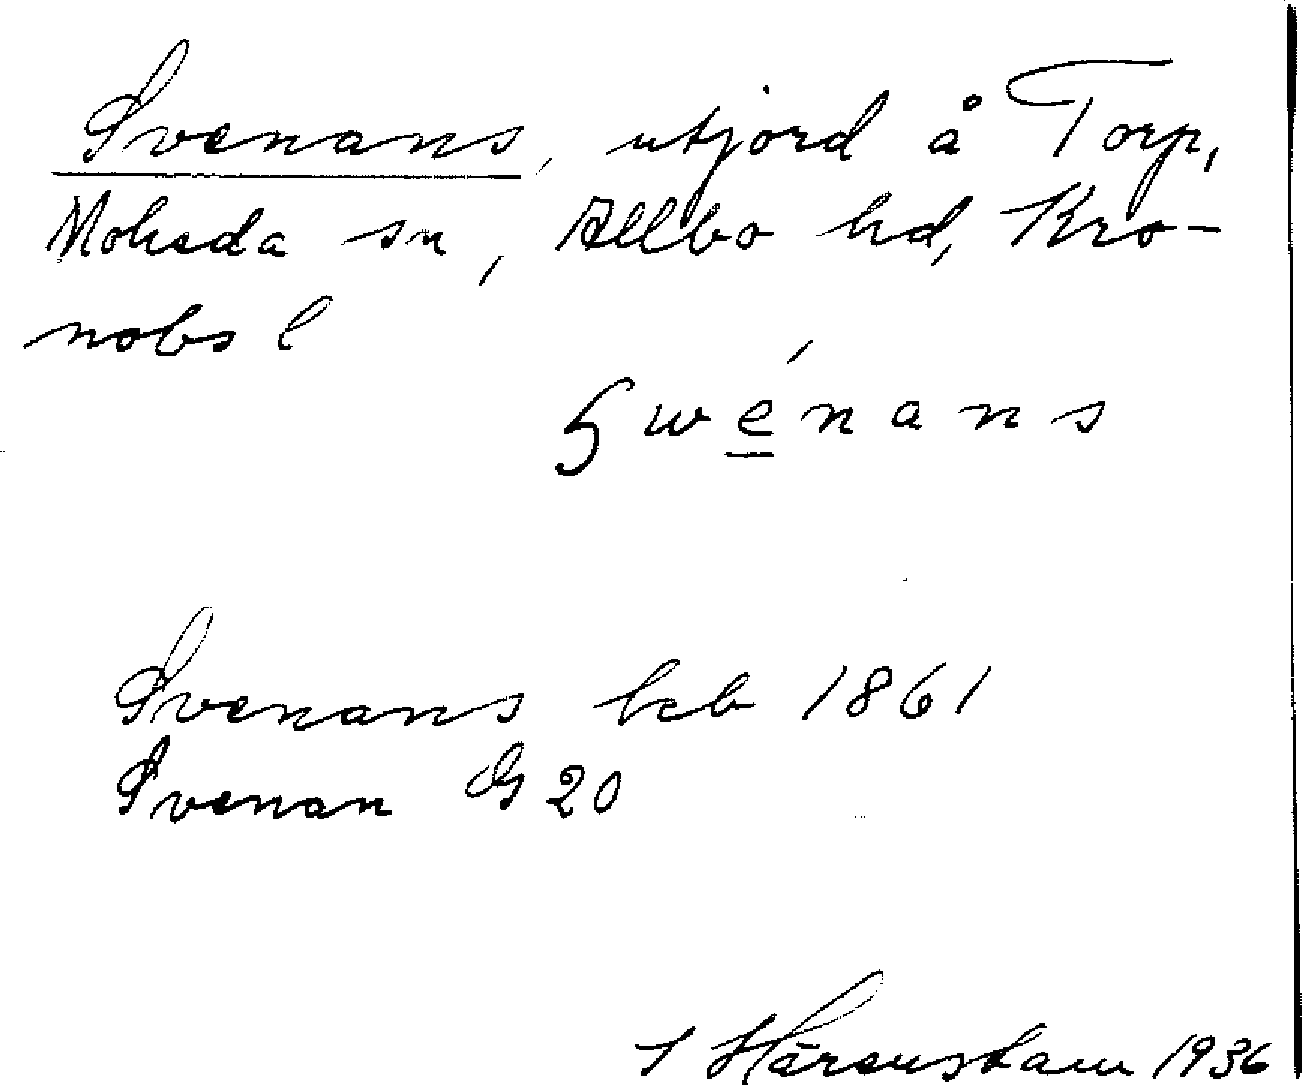 Svenans, utjord å Torp,
Moheda sn, Allbo hd, Kro-
nobs l
Swénans
Svenans lcb 1861
Svenan G 20
S Härenstam 1936